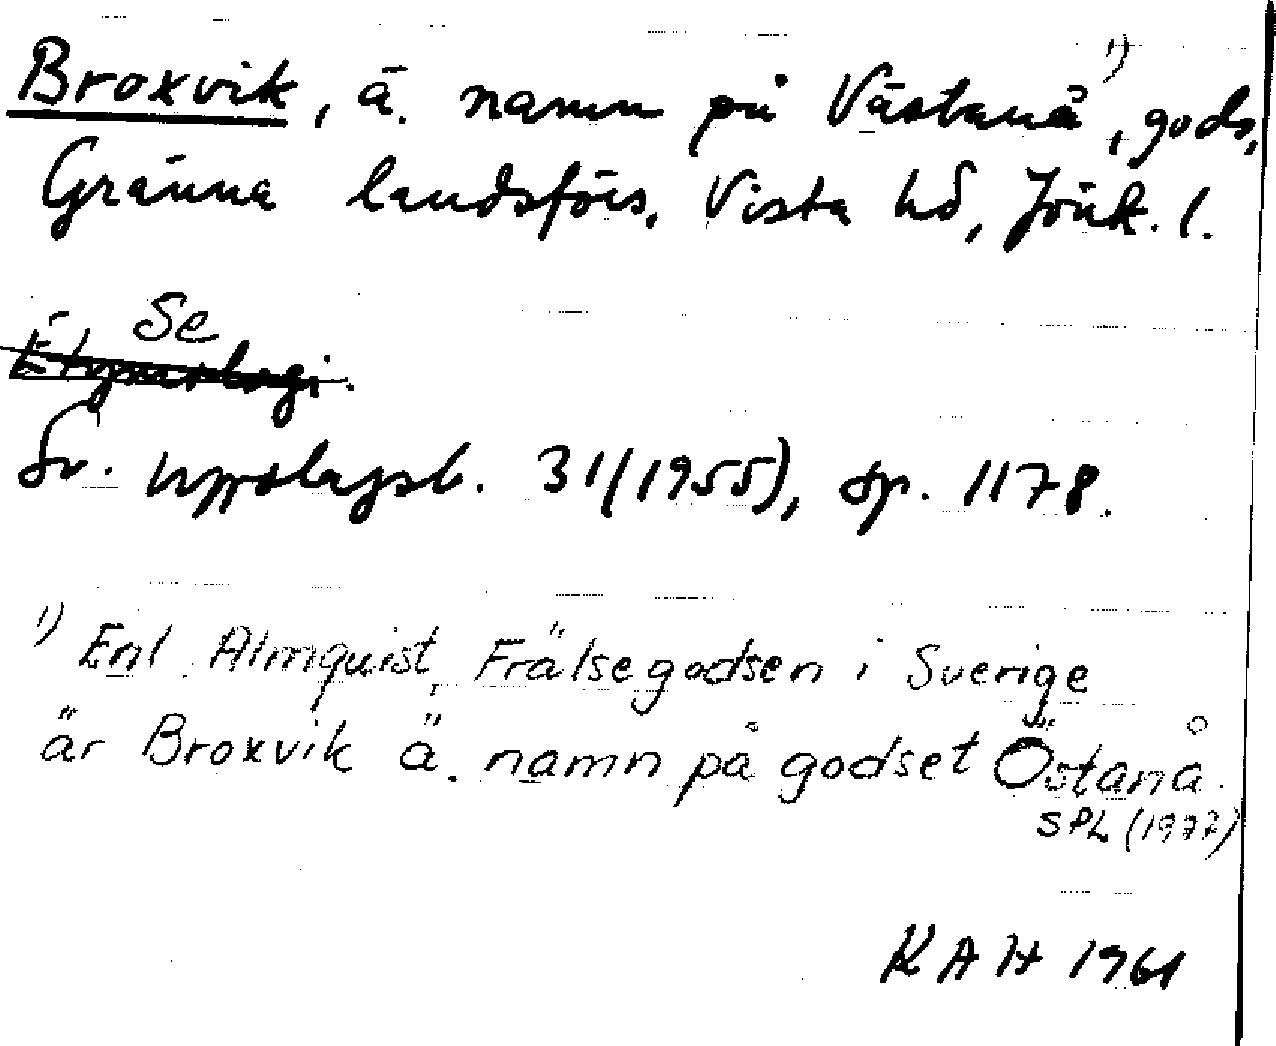 Broxvik, ä. namn på Västanå ¹⁾, gods,
Gränna landsförs, Vista hd, Jönk. l.
Se
Etymologi.
Sv. uppslagsb. 31 (1955), sp. 1178.
¹⁾ Enl Almquist, Frälsegodsen i Sverige
är Broxvik ä. namn på godset Östanå.
SPL (1977)
KAH 1961